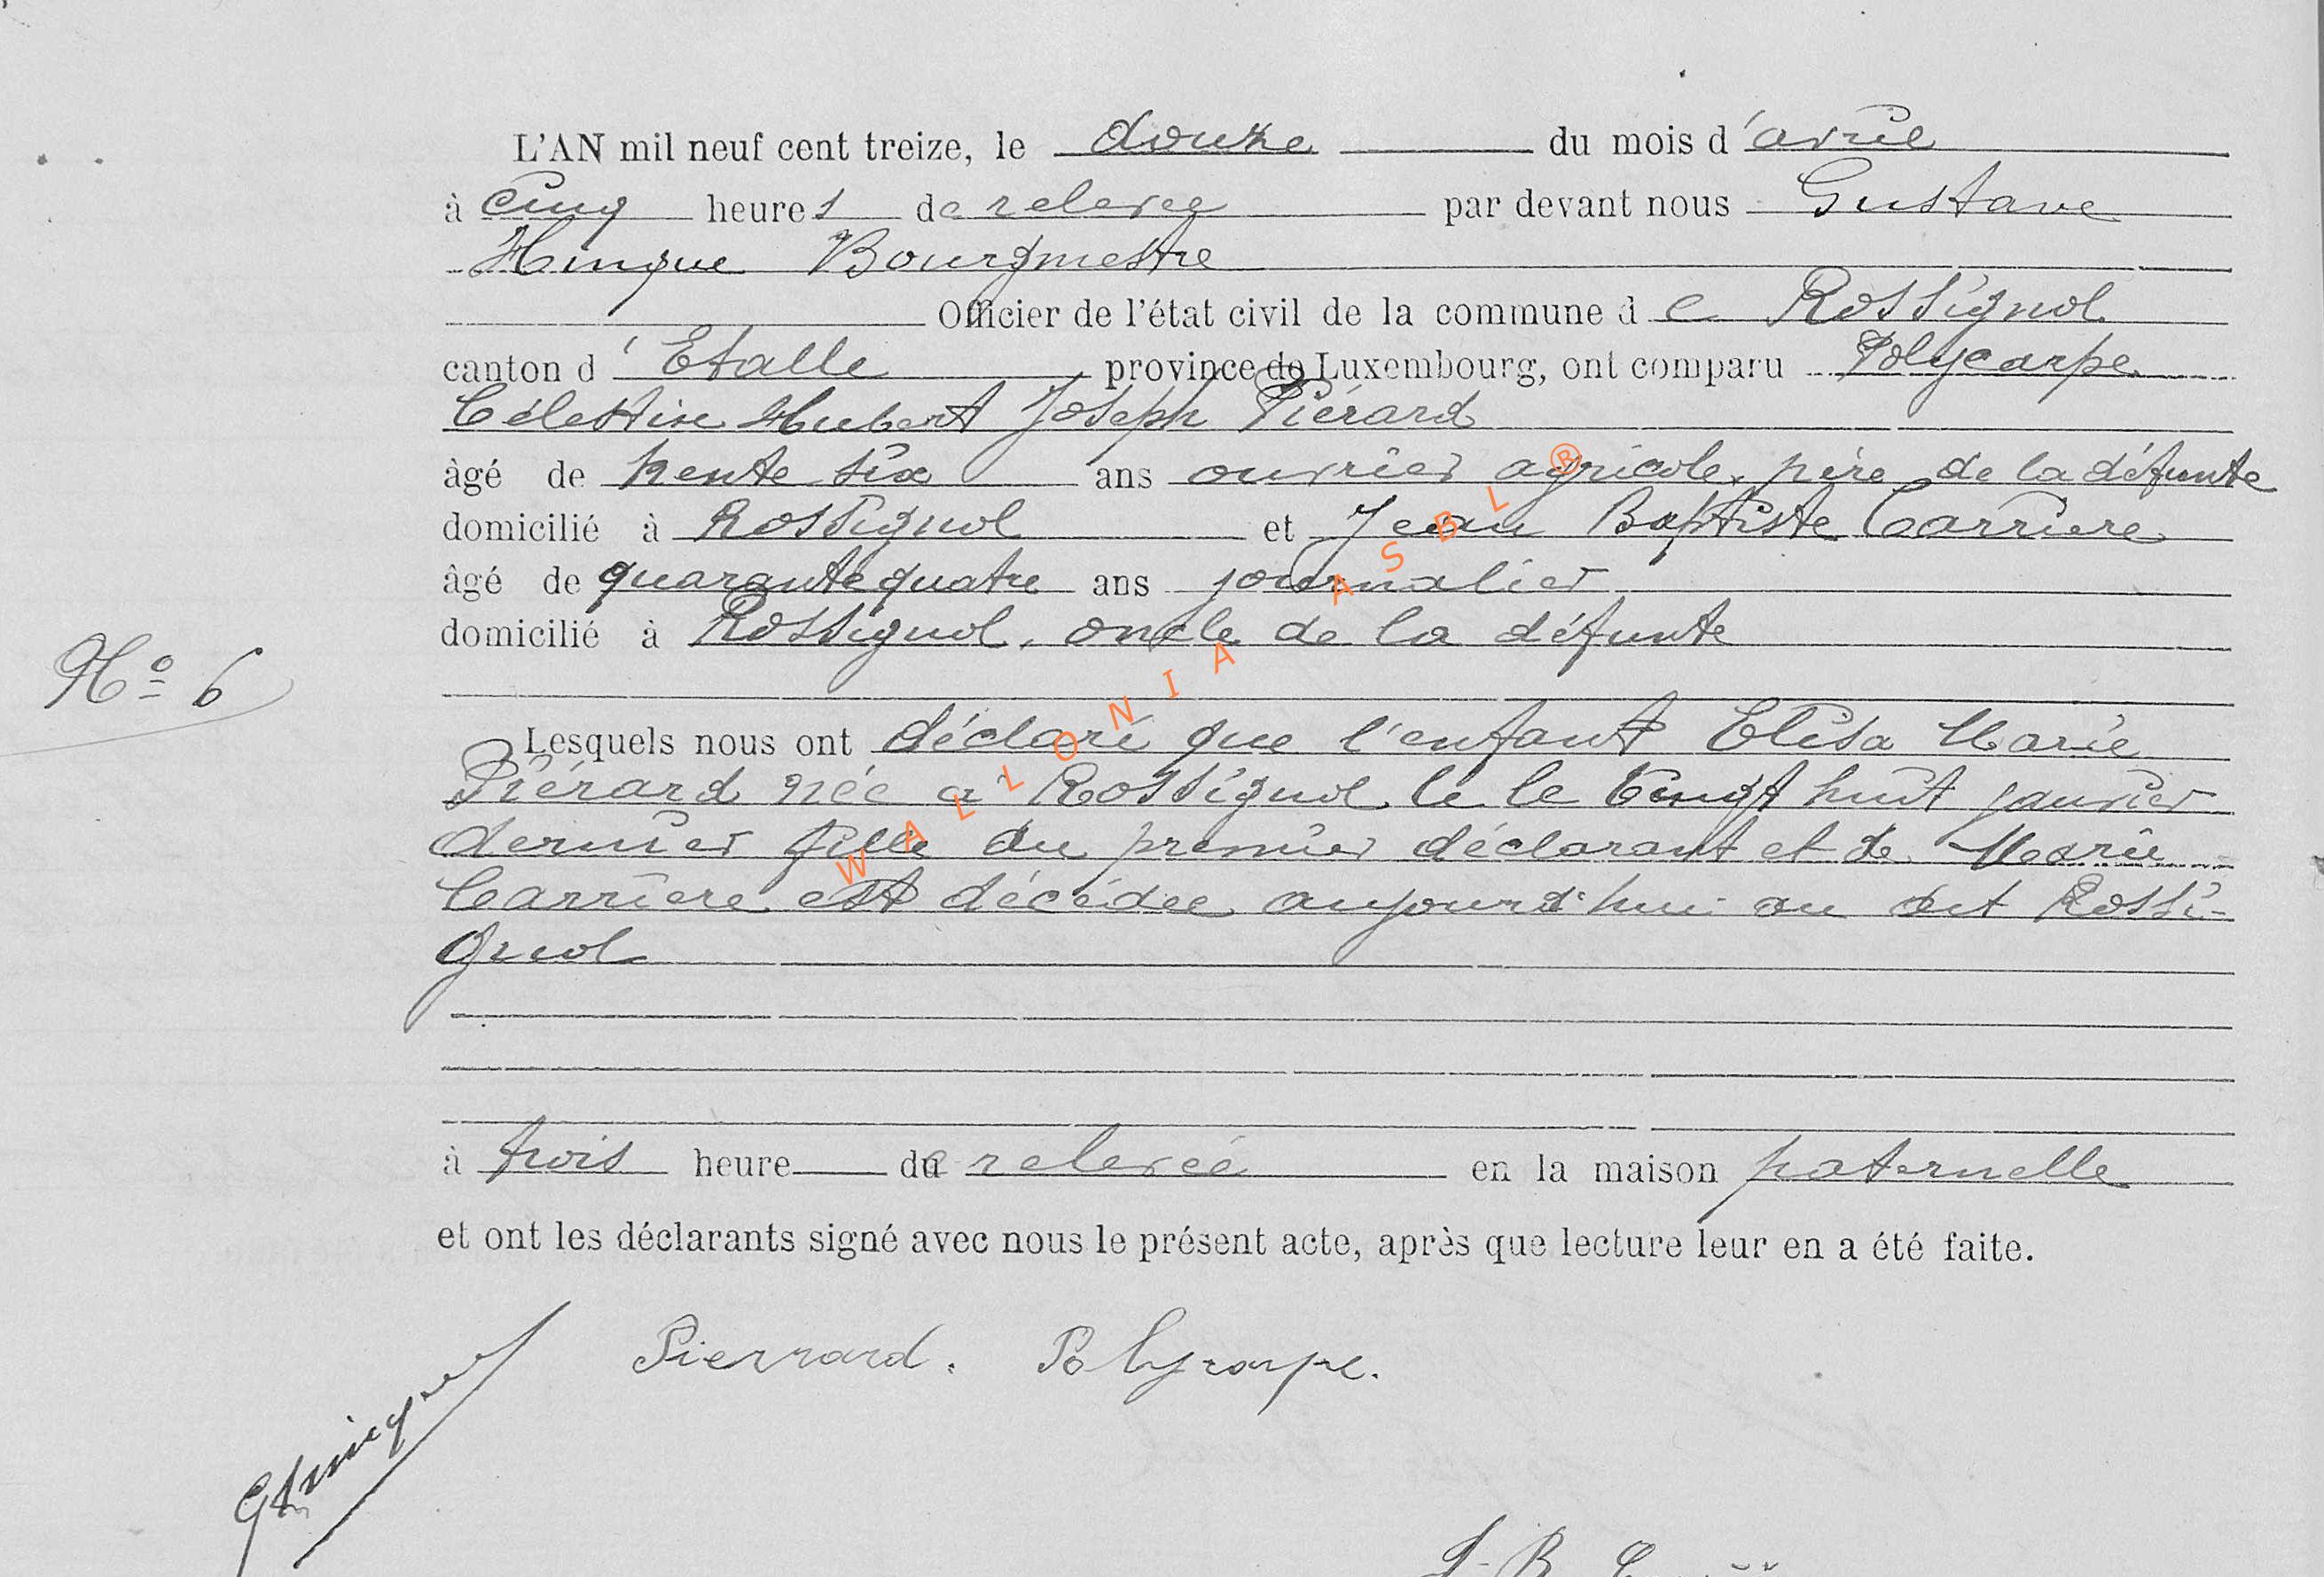 L'AN mil neuf cent treize, le douze du mois d'avril
à cinq heures de relevee par devant nous Gustave
Hinque Bourgmestre
Officier de l'état civil de la commune de Rossignol
canton d'Etalle province de Luxembourg, ont comparu Polycarpe
Célestin Hubert Joseph Piérard
âgé de trente six ans ouvrier agricole, père de la défunte
domicilié à Rossignol et Jean Baptiste Carriere
âgé de quarante quatre ans journalier
domicilié à Rossignol, oncle de la défunte
N° 6
Lesquels nous ont déclaré que l'enfant Elisa Marie
Piérard née a Rossignol le le vingt huit janvier
dernier fille du premier déclarant et de Marie
Carriere est décédée aujourd'hui au dit Rossi-
gnol
à trois heure de relevée en la maison paternelle
et ont les déclarants signé avec nous le présent acte, après que lecture leur en a été faite.
Pierrard. Polycarpe.
J. B.
WALLONIA ASBL ®